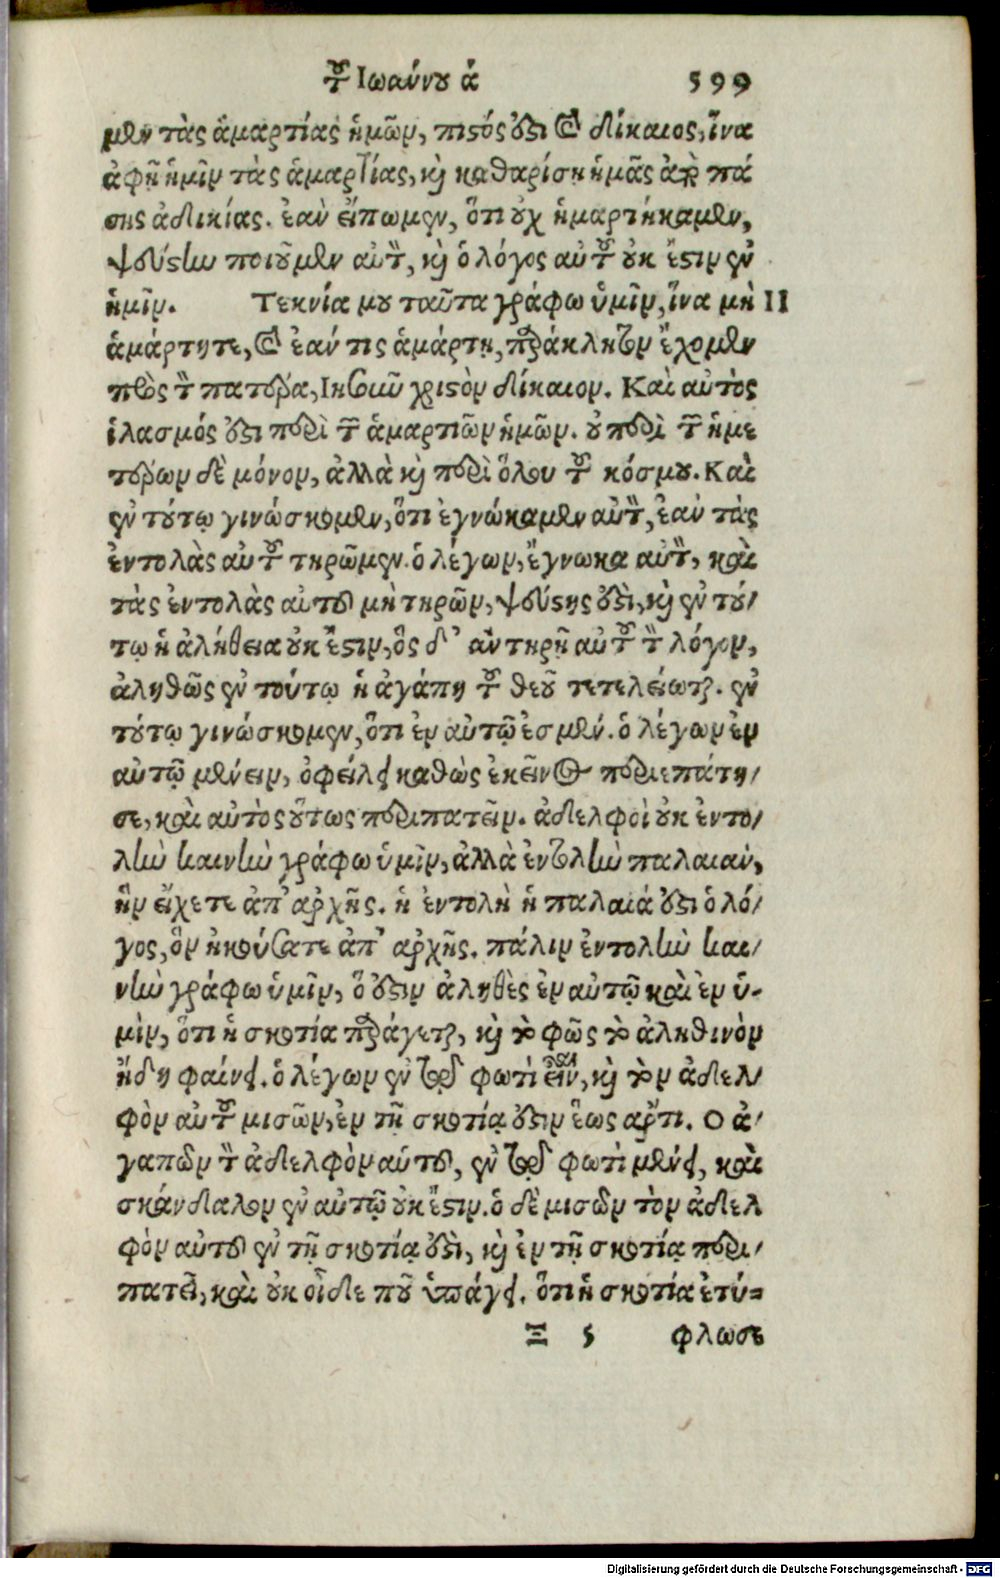 τοῦ Ἰωάννου ά 599
μεν τὰς ἁμαρτίας ἡμῶν, πιστός ἐστι καὶ δίκαιος, ἵνα
ἀφῇ ἡμῖν τὰς ἁμαρτίας, καὶ καθαρίσῃ ἡμᾶς ἀπὸ πά
σης ἀδικίας. ἐὰν εἴπωμεν, ὅτι οὐχ ἡμαρτήκαμεν,
ψεύστην ποιοῦμεν αὐτὸν, καὶ ὁ λόγος αὐτοῦ οὐκ ἔστιν ἐν
ἡμῖν. Τεκνία μου ταῦτα γράφω ὑμῖν, ἵνα μὴ II
ἁμάρτητε, καὶ ἐάν τις ἁμάρτῃ, παράκλητον ἔχομεν
πρὸς τὸν πατέρα, Ιησοῦν χριστὸν δίκαιον. Καὶ αὐτὸς
ἱλασμός ἐστι περὶ τῶν ἁμαρτιῶν ἡμῶν. οὐ περὶ τῶν ἡμε
τέρων δὲ μόνον, ἀλλὰ καὶ περὶ ὅλου τοῦ κόσμου. Καὶ
ἐν τούτῳ γινώσκομεν, ὅτι ἐγνώκαμεν αὐτὸν, ἐὰν τὰς
ἐντολὰς αὐτοῦ τηρῶμεν. ὁ λέγων, ἔγνωκα αὐτὸν, καὶ
τὰς ἐντολὰς αὐτοῦ μὴ τηρῶν, ψεύστης ἐστὶ, καὶ ἐν τού/
τῳ ἡ ἀλήθεια οὐκ ἔστιν, ὃς δ' ἂν τηρῇ αὐτοῦ τὸν λόγον,
ἀληθῶς ἐν τούτῳ ἡ ἀγάπη τοῦ θεοῦ τετελείωται. ἐν
τούτῳ γινώσκομεν, ὅτι ἐν αὐτῷ ἐσμέν. ὁ λέγων ἐν
αὐτῷ μένειν, ὀφείλει καθὼς ἐκεῖνος περιεπάτη/
σε, καὶ αὐτὸς οὕτως περιπατεῖν. ἀδελφοὶ οὐκ ἐντο/
λὴν καινὴν γράφω ὑμῖν, ἀλλὰ ἐντολὴν παλαιάν,
ἣν εἴχετε ἀπ' ἀρχῆς. ἡ ἐντολὴ ἡ παλαιά ἐστι ὁ λό/
γος, ὃν ἠκούσατε ἀπ' ἀρχῆς. πάλιν ἐντολὴν και/
νὴν γράφω ὑμῖν, ὅ ἐστιν ἀληθὲς ἐν αὐτῷ καὶ ἐν ὑ-
μῖν, ὅτι ἡ σκοτία παράγεται, καὶ τὸ φῶς τὸ ἀληθινὸν
ἤδη φαίνει. ὁ λέγων ἐν τῷ φωτὶ εἶναι, καὶ τὸν ἀδελ/
φὸν αὐτοῦ μισῶν, ἐν τῇ σκοτίᾳ ἐστιν ἕως ἄρτι. Ο ἀ/
γαπῶν τὸν ἀδελφὸν αὐτοῦ, ἐν τῷ φωτὶ μένει, καὶ
σκάνδαλον ἐν αὐτῷ οὐκ ἔστιν. ὁ δὲ μισῶν τὸν ἀδελ
φὸν αὐτοῦ ἐν τῇ σκοτίᾳ ἐστὶ, καὶ ἐν τῇ σκοτίᾳ περι/
πατεῖ, καὶ οὐκ οἶδε ποῦ ὑπάγει. ὅτι ἡ σκοτία ἐτύ=
Ξ 5 φλωσε
Digitalisierung gefördert durch die Deutsche Forschungsgemeinschaft - DFG